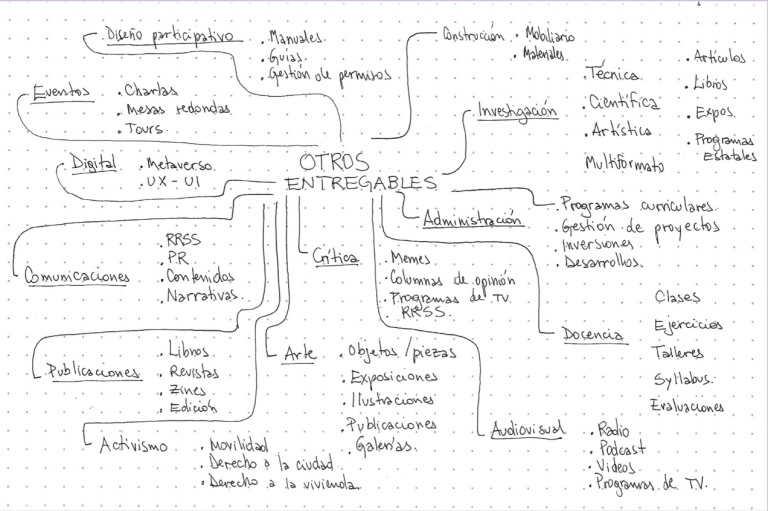 OTROS
ENTREGABLES
Diseño participativo
. Manuales
. Guías
. Gestión de permisos
Construcción
. Mobiliario
. Materiales
Eventos
. Charlas
. Mesas redondas
. Tours
Investigación
. Técnica
. Científica
. Artística
Multiformato
. Artículos
. Libros
. Expos
. Programas
Estatales
Digital
. Metaverso
. UX - UI
Administración
. Programas curriculares
. Gestión de proyectos
. Inversiones
. Desarrollos.
Comunicaciones
. RRSS
. PR
. Contenidos
. Narrativas.
Crítica
. Memes
. Columnas de opinión
. Programas de TV.
. RRSS.
Docencia
Clases
Ejercicios
Talleres
Syllabus.
Evaluaciones
Publicaciones
. Libros
. Revistas
. Zines
. Edición
Arte
. Objetos / piezas
. Exposiciones
. Ilustraciones
. Publicaciones
. Galerías.
Activismo
. Movilidad
. Derecho a la ciudad
. Derecho a la vivienda
Audiovisual
. Radio
. Podcast
. Videos
. Programas de TV.